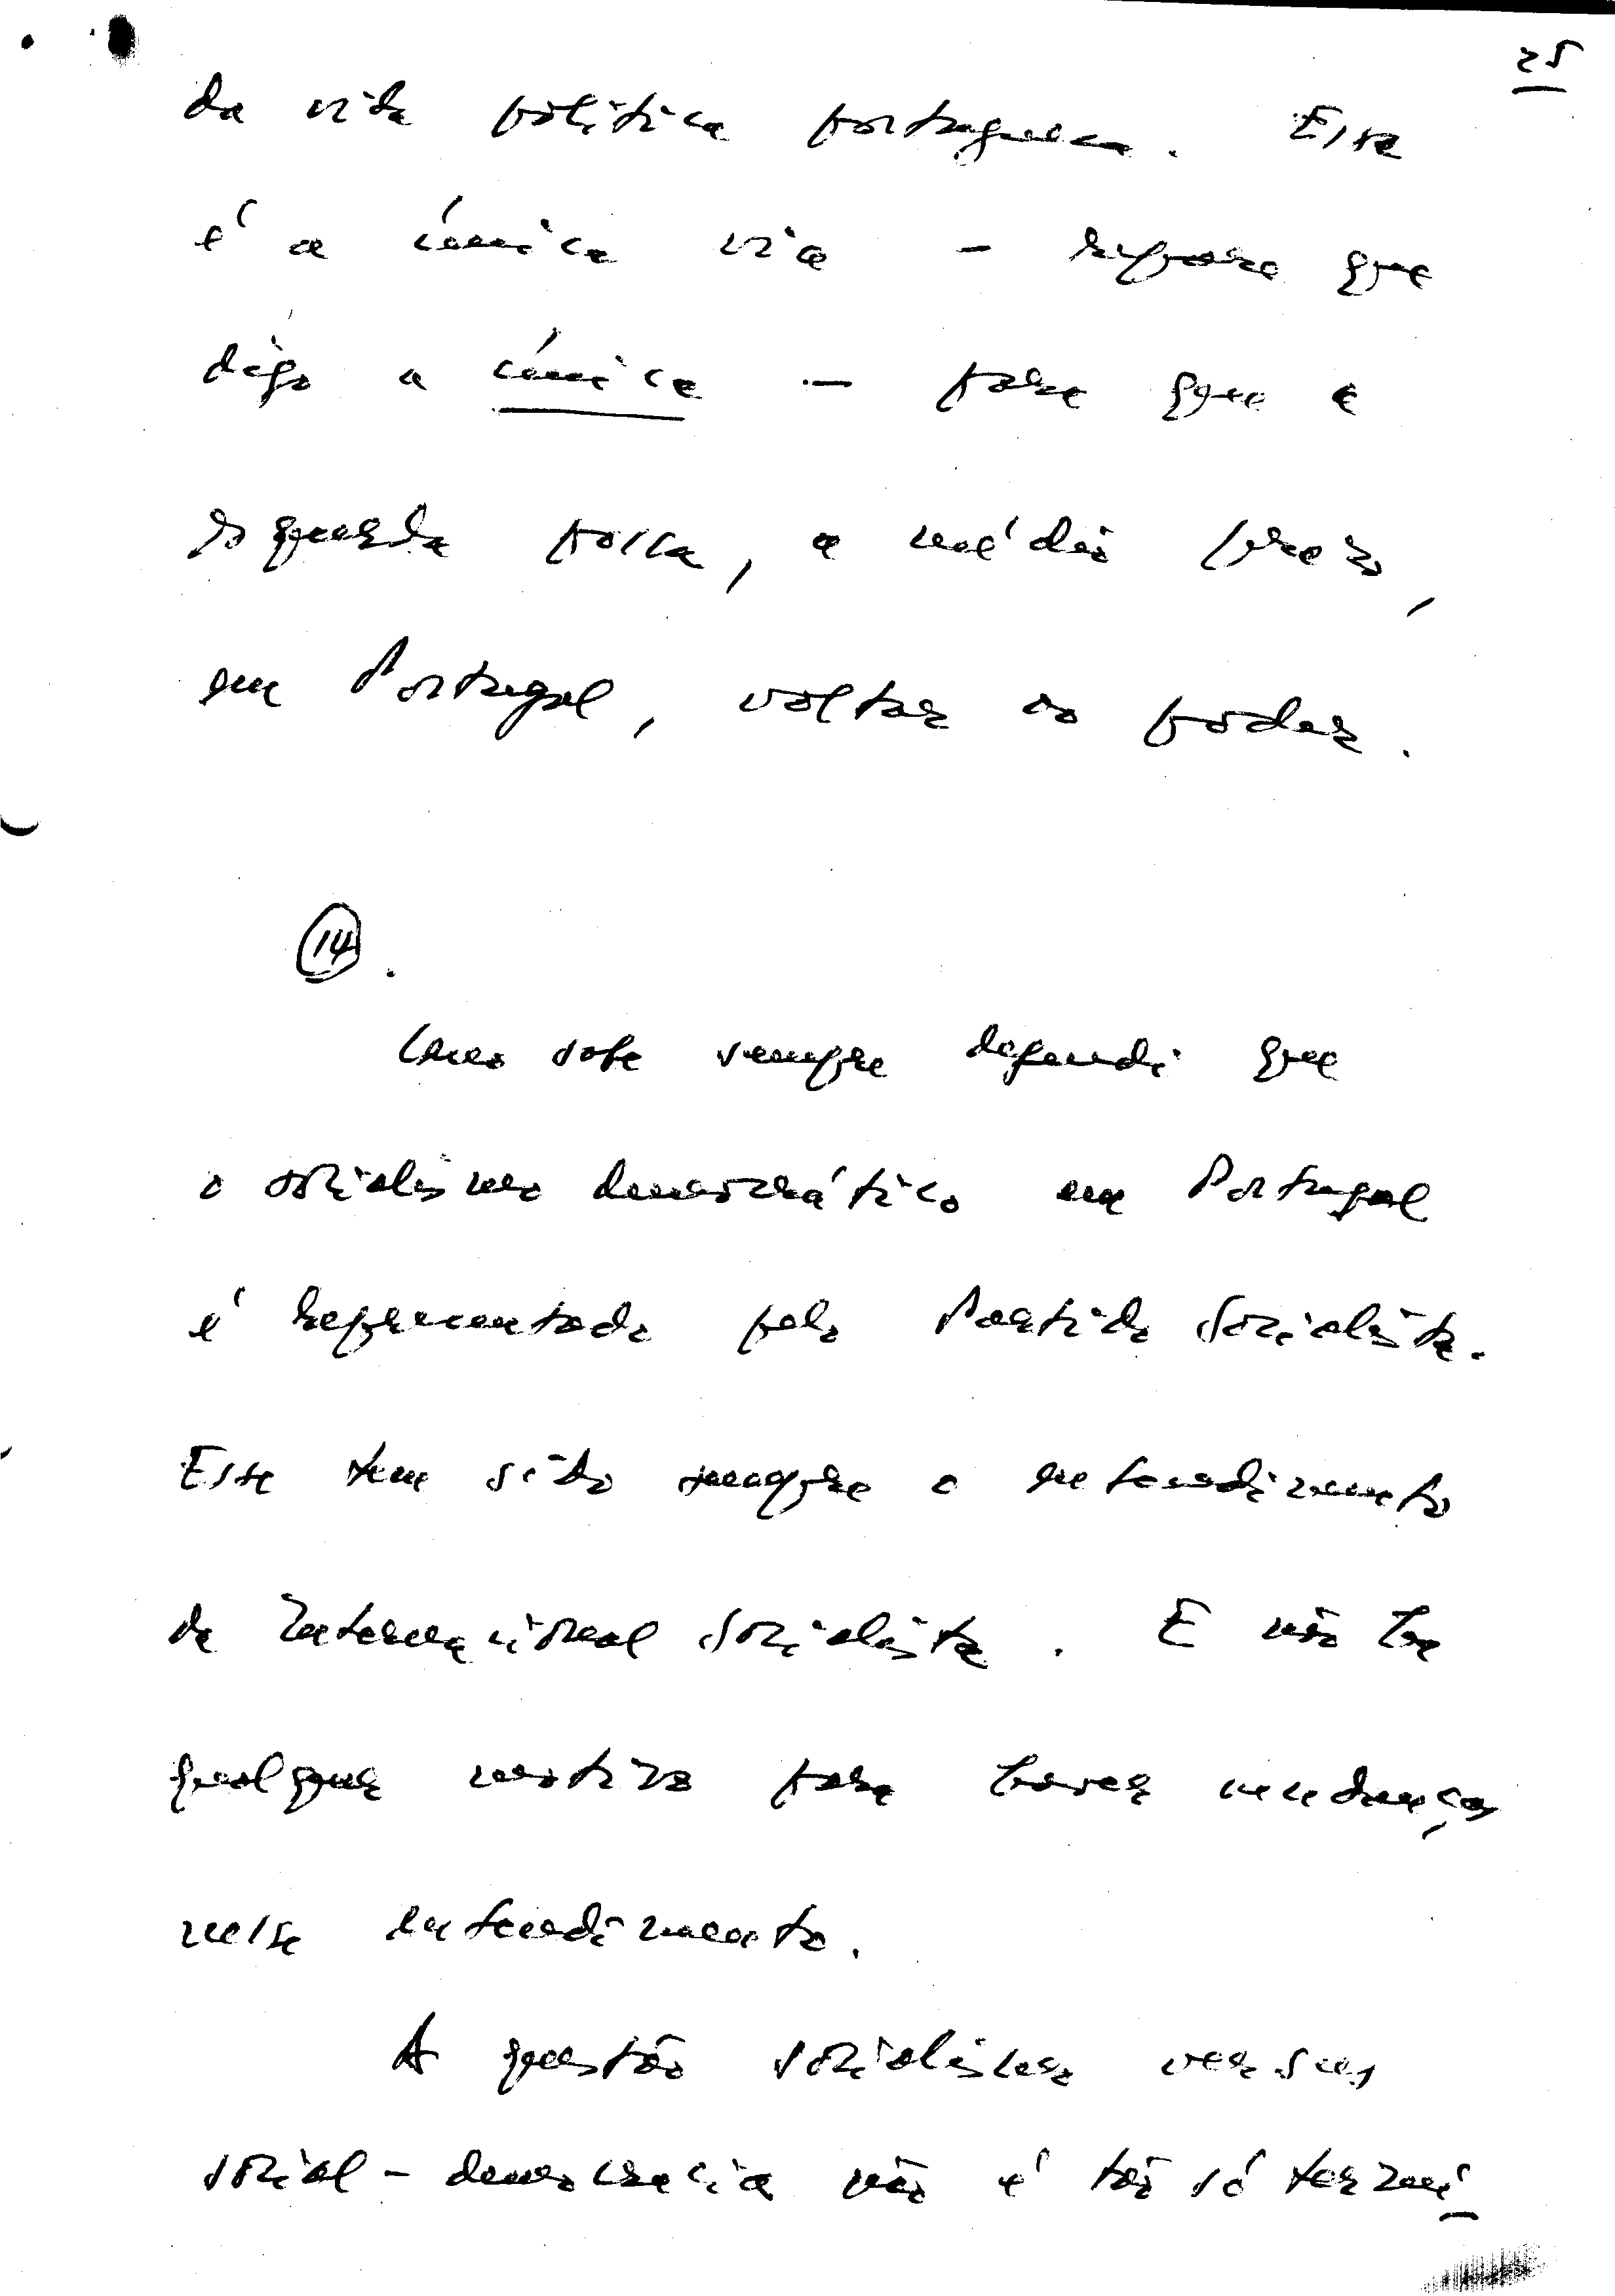 25
da vida política portuguesa. Esta
é a única via – repare que
digo a única – para que a
esquerda possa, a médio prazo,
em Portugal, voltar ao poder.
14.
Como sabe sempre defendi que
o socialismo democrático em Portugal
é representado pelo Partido Socialista.
Esse tem sido sempre o entendimento
da Internacional Socialista. E não há
qualquer motivo para haver mudanças
nesse entendimento.
A questão socialismo versus
social-democracia não é tão só termi